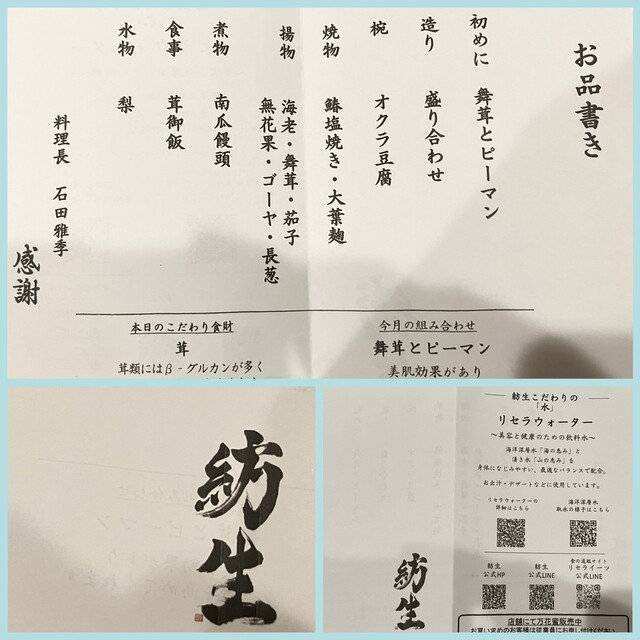 お品書き
初めに 舞茸とピーマン
造り 盛り合わせ
椀 オクラ豆腐
焼物 鰆塩焼き・大葉麹
揚物 海老・舞茸・茄子
無花果・ゴーヤ・長葱
煮物 南瓜饅頭
食事 茸御飯
水物 梨
料理長 石田雅季
感謝
今月の組み合わせ
舞茸とピーマン
美肌効果があり
本日のこだわり食財
茸
茸類にはβ-グルカンが多く
紡生
紡生こだわりの
「水」
リセラウォーター
～美容と健康のための飲料水～
海洋深層水「海の恵み」と
湧き水「山の恵み」を
身体になじみやすい、最適なバランスで配合。
お出汁・デザートなどに使用しています。
リセラウォーターの
詳細はこちら
海洋深層水
取水の様子はこちら
紡生
公式HP
紡生
公式LINE
食の通販サイト
リセライーツ
公式LINE
店舗にて万花蜜販売中
お買い求めのお客様は従業員にお申し付けください
紡生